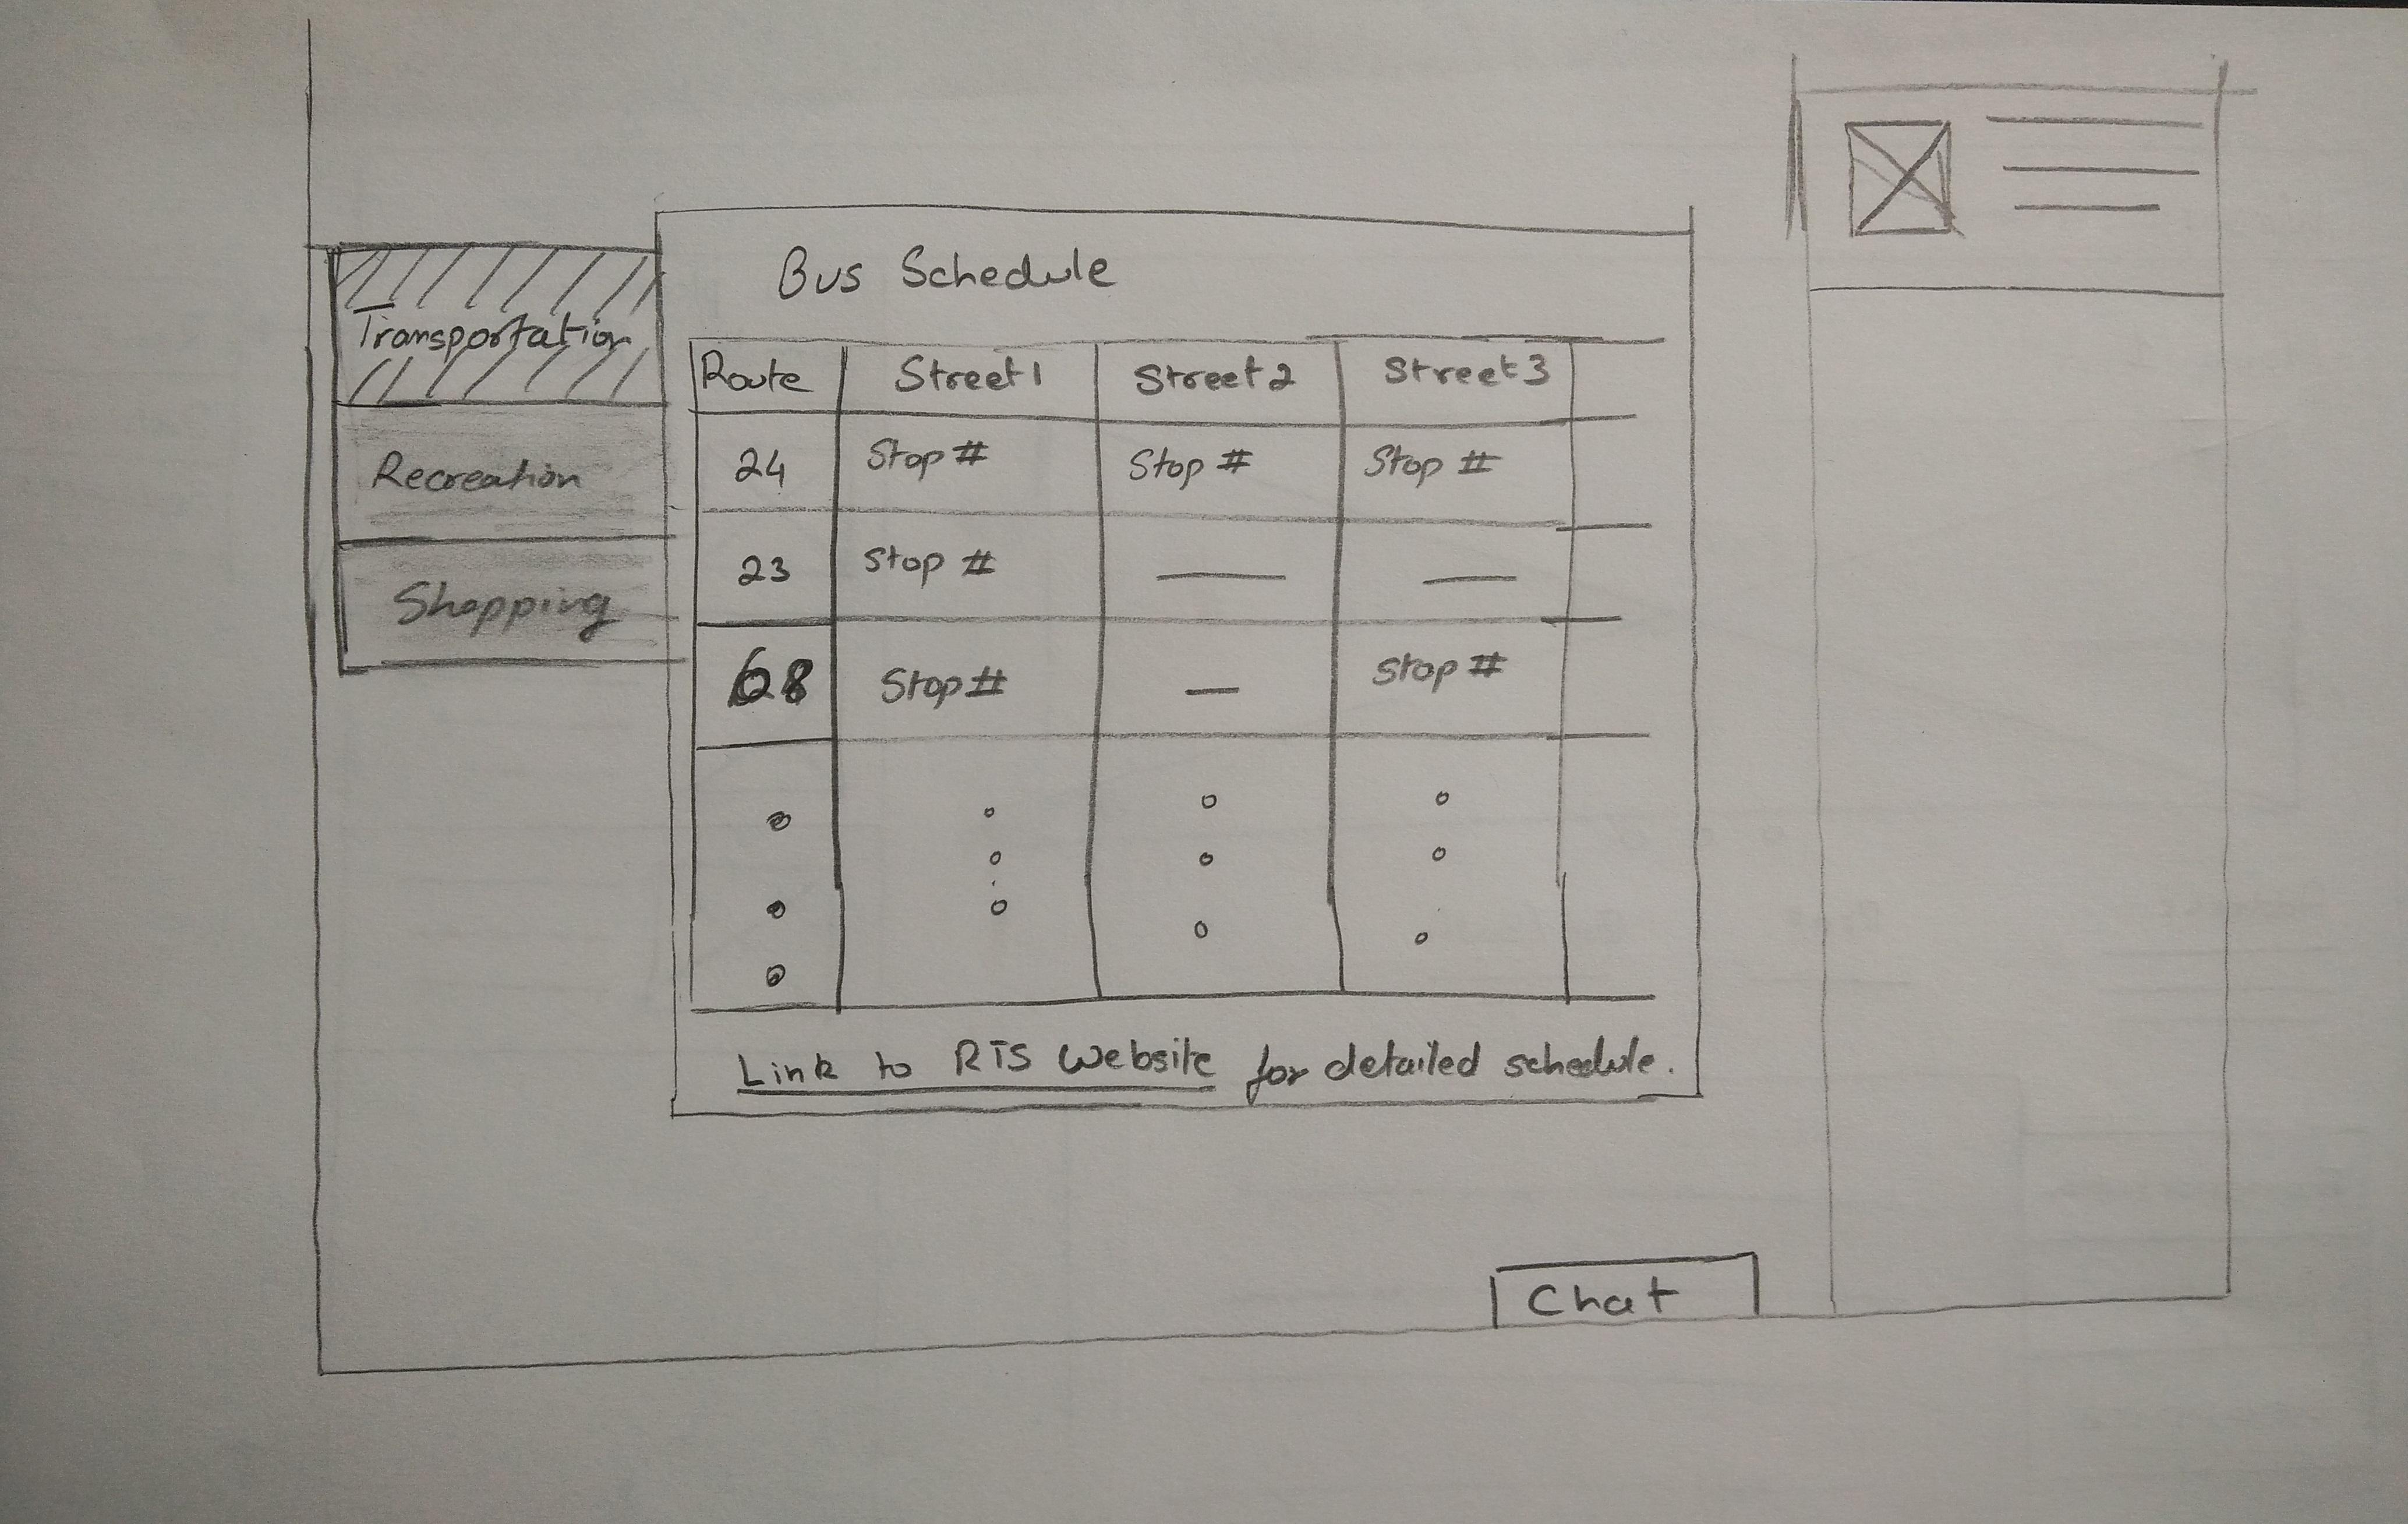 Bus Schedule
Transportation
Recreation
Shopping
Route Street 1 Street 2 Street 3
24 Stop # Stop # Stop #
23 Stop # — —
68 Stop # — Stop #
Link to RTS Website for detailed schedule.
Chat